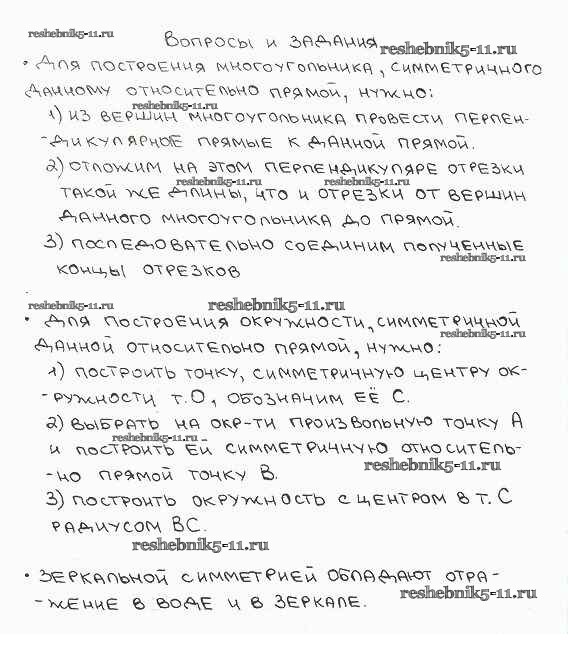 reshebnik5-11.ru
ВОПРОСЫ И ЗАДАНИЯ reshebnik5-11.ru
• ДЛЯ ПОСТРОЕНИЯ МНОГОУГОЛЬНИКА, СИММЕТРИЧНОГО
ДАННОМУ ОТНОСИТЕЛЬНО ПРЯМОЙ, НУЖНО:
reshebnik5-11.ru
1) ИЗ ВЕРШИН МНОГОУГОЛЬНИКА ПРОВЕСТИ ПЕРПЕН-
-ДИКУЛЯРНОЕ ПРЯМЫЕ К ДАННОЙ ПРЯМОЙ.
2) ОТЛОЖИМ НА ЭТОМ ПЕРПЕНДИКУЛЯРЕ ОТРЕЗКИ
reshebnik5-11.ru reshebnik5-11.ru
ТАКОЙ ЖЕ ДЛИНЫ, ЧТО И ОТРЕЗКИ ОТ ВЕРШИН
ДАННОГО МНОГОУГОЛЬНИКА ДО ПРЯМОЙ.
3) ПОСЛЕДОВАТЕЛЬНО СОЕДИНИМ ПОЛУЧЕННЫЕ
reshebnik5-11.ru
КОНЦЫ ОТРЕЗКОВ
reshebnik5-11.ru reshebnik5-11.ru
• ДЛЯ ПОСТРОЕНИЯ ОКРУЖНОСТИ, СИММЕТРИЧНОЙ
reshebnik5-11.ru
ДАННОЙ ОТНОСИТЕЛЬНО ПРЯМОЙ, НУЖНО:
1) ПОСТРОИТЬ ТОЧКУ, СИММЕТРИЧНУЮ ЦЕНТРУ ОК-
-РУЖНОСТИ Т.О, ОБОЗНАЧИМ ЕЁ С.
2) ВЫБРАТЬ НА ОКР-ТИ ПРОИЗВОЛЬНУЮ ТОЧКУ А
reshebnik5-11.ru
И ПОСТРОИТЬ ЕЙ СИММЕТРИЧНУЮ ОТНОСИТЕЛЬ-
reshebnik5-11.ru
-НО ПРЯМОЙ ТОЧКУ В.
3) ПОСТРОИТЬ ОКРУЖНОСТЬ С ЦЕНТРОМ В Т. С
РАДИУСОМ ВС.
reshebnik5-11.ru
• ЗЕРКАЛЬНОЙ СИММЕТРИЕЙ ОБЛАДАЮТ ОТРА-
-ЖЕНИЕ В ВОДЕ И В ЗЕРКАЛЕ. reshebnik5-11.ru